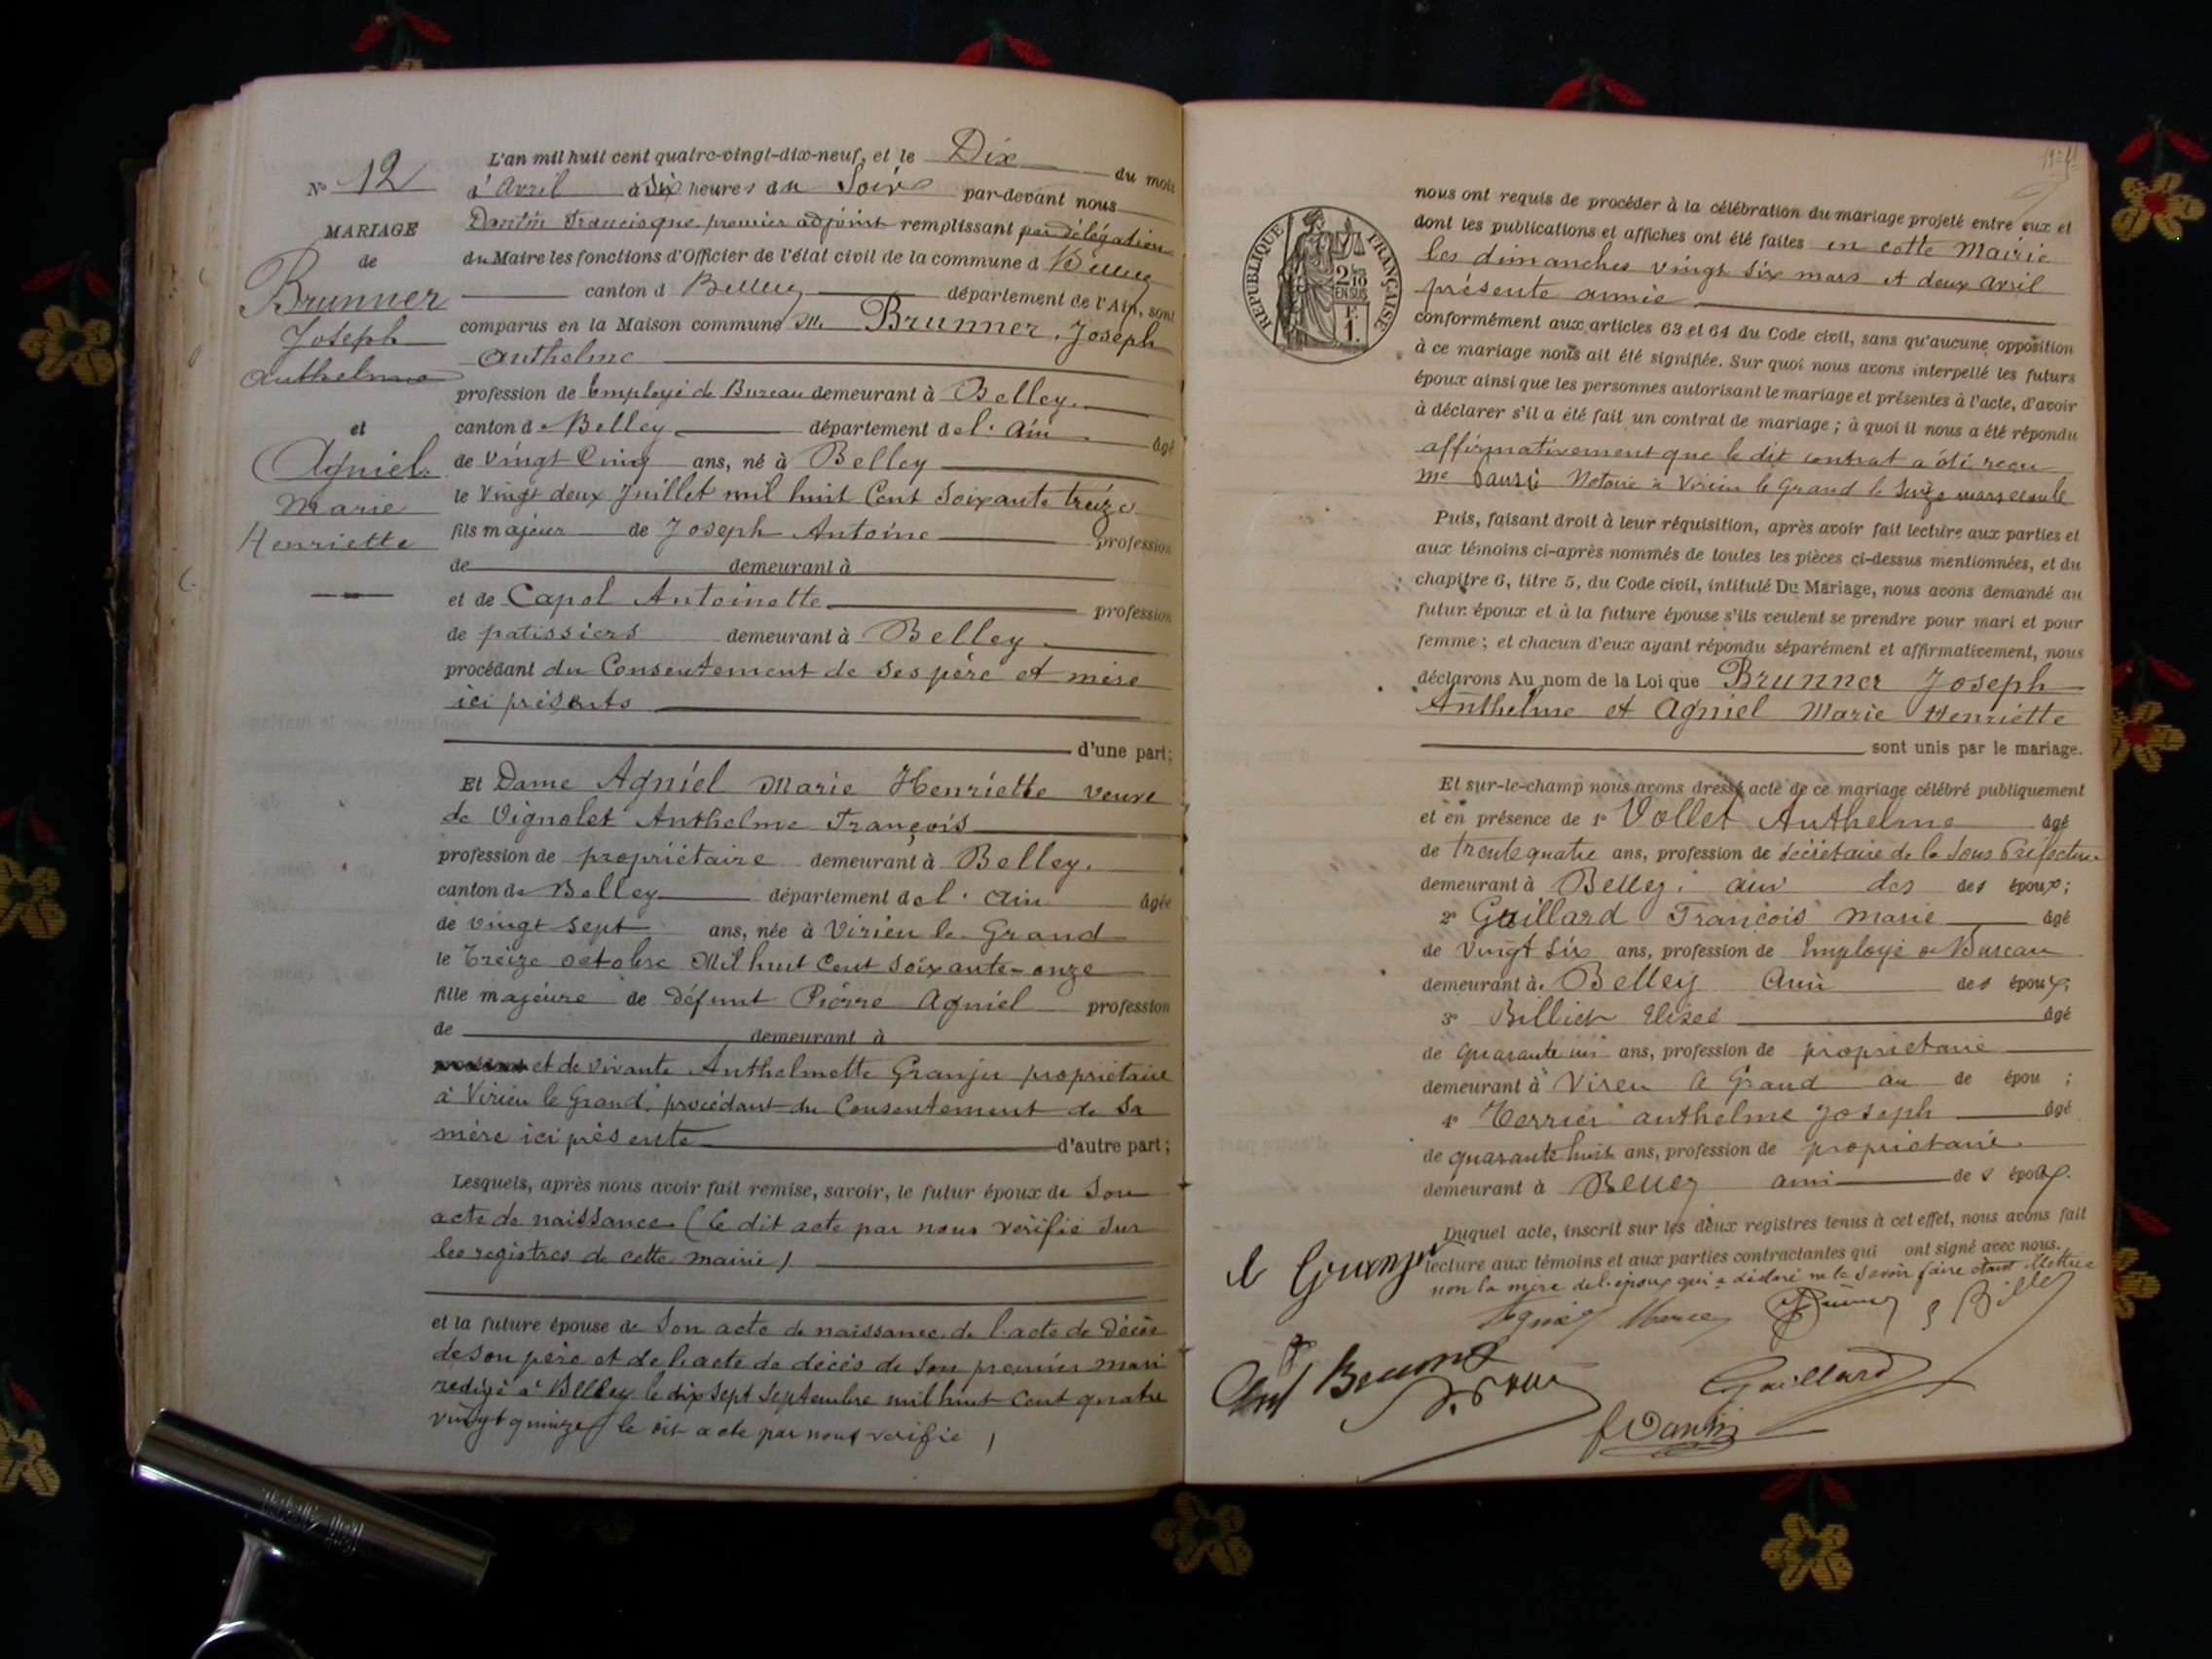 N° 12
MARIAGE
de
Brunner
Joseph
Anthelme
et
Agniel
Marie
Henriette
L'an mil huit cent quatre-vingt-dix-neuf, et le Dix du mois
d'Avril à Six heures du Soir par-devant nous
Dantin Francisque premier adjoint remplissant par délégation
du Maire les fonctions d'Officier de l'état civil de la commune d Belley
canton d Belley département de l'Ain, sont
comparus en la Maison commune M. Brunner Joseph
Anthelme
profession de Employé de Bureau demeurant à Belley.
canton de Belley département de l'Ain âgé
de Vingt Cinq ans, né à Belley
le Vingt deux Juillet mil huit Cent Soixante treize
fils majeur de Joseph Antoine profession
de demeurant à
et de Capol Antoinette profession
de patissiers demeurant à Belley
procédant du Consentement de Ses père et mère
ici présents
d'une part;
Et Dame Agniel Marie Henriette veuve
de Vignolet Anthelme François
profession de propriétaire demeurant à Belley.
canton de Belley département de l'Ain âgée
de vingt sept ans, née à Virieu le Grand
le Treize octobre Mil huit Cent Soixante-onze
fille majeure de défunt Pierre Agniel profession
de demeurant à
et de vivante Anthelmette Granjer propriétaire
à Virieu le Grand, procédant du Consentement de Sa
mère ici présente d'autre part;
Lesquels, après nous avoir fait remise, savoir, le futur époux de Son
acte de naissance (le dit acte par nous vérifié sur
les registres de cette mairie)
et la future épouse de Son acte de naissance de l'acte de Décès
de son père et de l'acte de décès de Son premier mari
redigé à Belley le dix sept Septembre mil huit Cent quatre
vingt quinze le dit acte par nous verifié
RÉPUBLIQUE FRANÇAISE
2/10
EN SUS
F.
1.
nous ont requis de procéder à la célébration du mariage projeté entre eux et
dont les publications et affiches ont été faites en cette Mairie
les dimanches vingt six mars et deux avril
présente année
conformément aux articles 63 et 64 du Code civil, sans qu'aucune opposition
à ce mariage nous ait été signifiée. Sur quoi nous avons interpellé les futurs
époux ainsi que les personnes autorisant le mariage et présentes à l'acte, d'avoir
à déclarer s'il a été fait un contrat de mariage ; à quoi il nous a été répondu
affirmativement que le dit contrat a été reçu
me Notaire à Virieu le Grand le mars
Puis, faisant droit à leur réquisition, après avoir fait lecture aux parties et
aux témoins ci-après nommés de toutes les pièces ci-dessus mentionnées, et du
chapitre 6, titre 5, du Code civil, intitulé Du Mariage, nous avons demandé au
futur époux et à la future épouse s'ils veulent se prendre pour mari et pour
femme ; et chacun d'eux ayant répondu séparément et affirmativement, nous
déclarons Au nom de la Loi que Brunner Joseph
Anthelme et Agniel Marie Henriette
sont unis par le mariage.
Et sur-le-champ nous avons dressé acte de ce mariage célébré publiquement
et en présence de 1° Vollet Anthelme âgé
de trente quatre ans, profession de Secrétaire de la Sous Préfecture
demeurant à Belley. ami des des époux;
2° Guillard François Marie âgé
de Vingt Six ans, profession de Employé de Bureau
demeurant à Belley ami des époux;
3° Billiet Elisée âgé
de quarante ans, profession de propriétaire
demeurant à Virieu le Grand de épou ;
4° Terrier Anthelme Joseph âgé
de quarante huit ans, profession de propriétaire
demeurant à Belley ami des époux.
Duquel acte, inscrit sur les deux registres tenus à cet effet, nous avons fait
lecture aux témoins et aux parties contractantes qui ont signé avec nous.
non la mère de l'époux qui a déclaré ne le savoir faire étant illettrée
Gaillard
Dantin